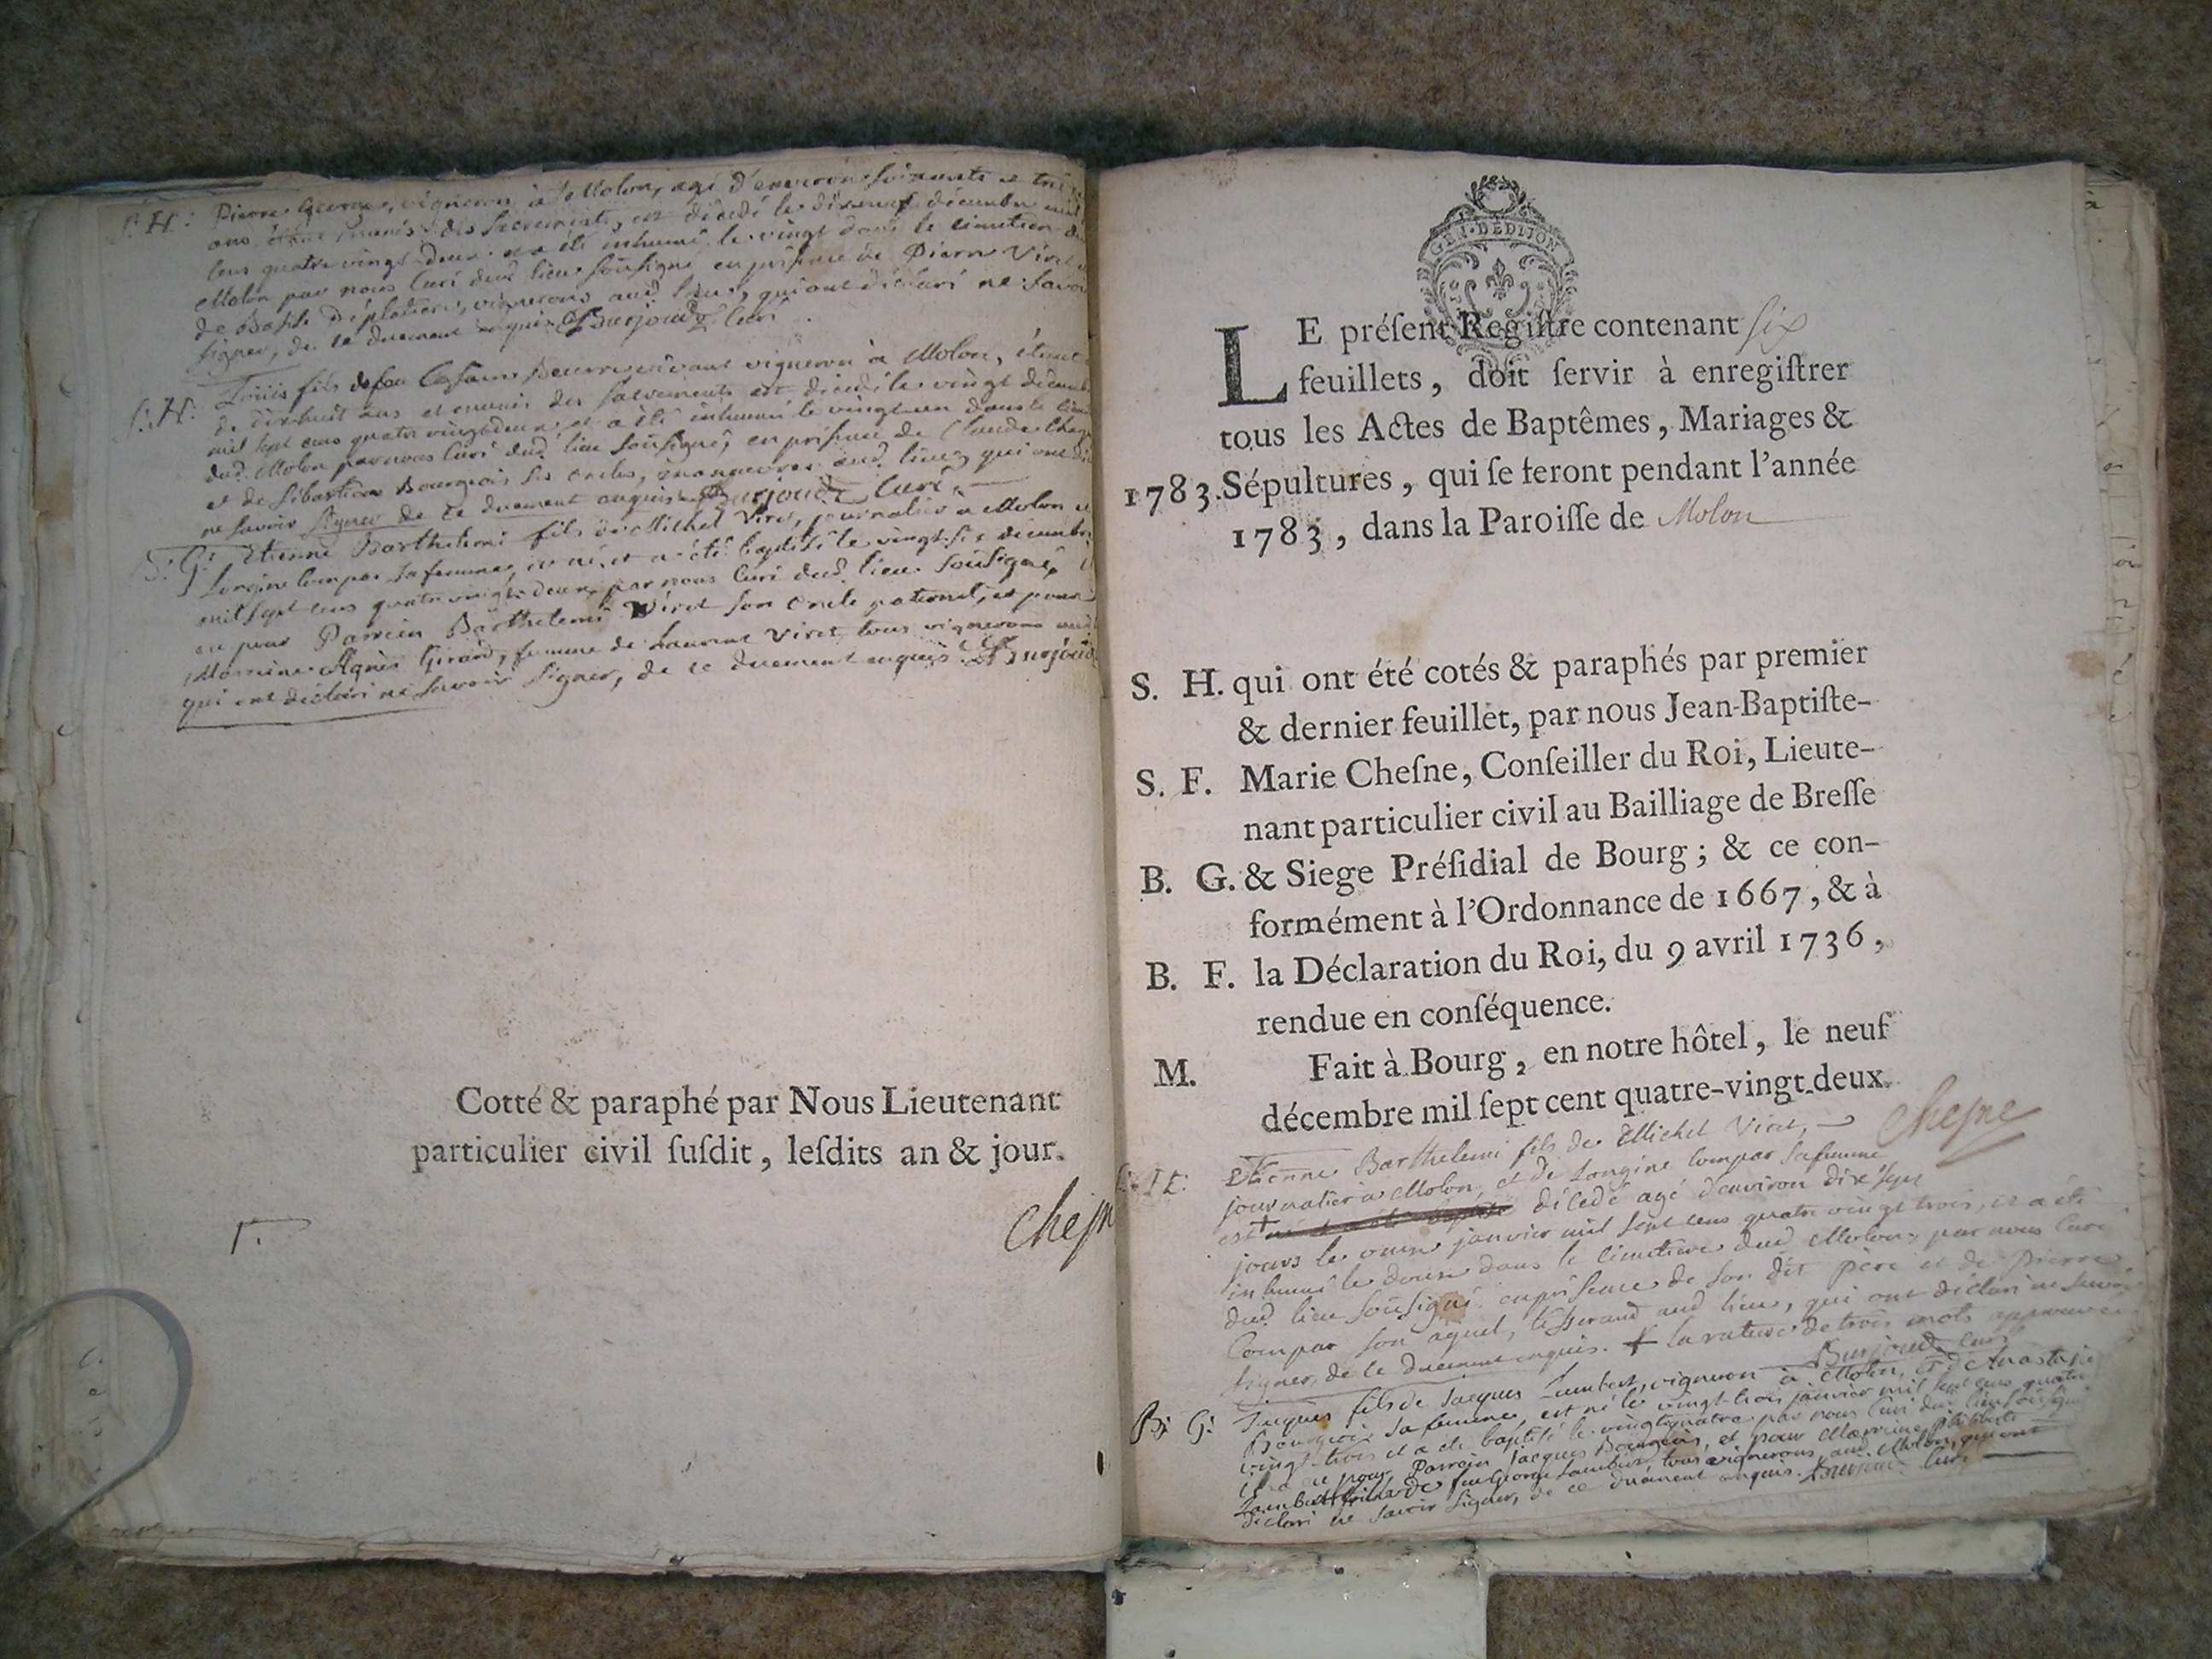 S. H: Pierre George, vigneron à Molon, agé d'environ soixante et trei
ans, étant munis des sacrements, est décédé le dixneuf décembre mil
cens quatre vingt deux et a été inhumé le vingt dans le cimetiere du
Molon par nous Curé dud. lieu soussigné en présence de Pierre Viret
de vignerons aud. lieu, qui ont déclaré ne savoi
signer, de ce duement enquis Burjoud curé
S: H: Louis fils de feu vivant vigneron à Molon, étant
de dixhuit ans et munis des sacrements est décédé le vingt décemb
mil sept cens quatre vingt deux et a été inhumé le vingt un dans le cim
dud. Molon par nous Curé dud. lieu soussigné, en présence de Claude
et de Sébastien Bourgeois ses oncles, manoeuvres aud. lieu, qui ont dé
ne savoir signer de ce duement enquis Burjoud curé.
B: G: Etienne Barthelemi fils de Michel Viret, journalier à Molon et
Longine Compar sa femme, est né, et a été baptisé le vingt six décembre
mil sept cens quatre vingt deux, par nous Curé dud. lieu soussigné, il
eu pour Parrein Barthelemi Viret son oncle paternel, et pour
Marreine Agnès Girard, femme de Laurent Viret, tous vignerons aud.
qui ont déclaré ne savoir signer, de ce duement enquis Burjoud
Cotté & paraphé par Nous Lieutenant
particulier civil ſuſdit, leſdits an & jour.
Cheſn
GEN·DE DIJON
LE préſent Regiſtre contenant six
feuillets, doit ſervir à enregiſtrer
tous les Actes de Baptêmes, Mariages &
1783. Sépultures, qui ſe feront pendant l'année
1783, dans la Paroiſſe de Molon
S. H. qui ont été cotés & paraphés par premier
& dernier feuillet, par nous Jean-Baptiſte-
S. F. Marie Cheſne, Conſeiller du Roi, Lieute-
nant particulier civil au Bailliage de Breſſe
B. G. & Siege Préſidial de Bourg; & ce con-
formément à l'Ordonnance de 1667, & à
B. F. la Déclaration du Roi, du 9 avril 1736,
rendue en conſéquence.
M. Fait à Bourg, en notre hôtel, le neuf
décembre mil ſept cent quatre-vingt-deux.
Cheſne
S: H: Etienne Barthelemi fils de Michel Viret,
journalier à Molon, et de Longine Compar sa femme
est + décedé agé d'environ dix sept
jours le onze janvier mil sept cens quatre vingt trois, et a été
inhumé le douze dans le cimetiere dud. Molon, par nous Curé
dud. lieu soussigné en présence de son dit père et de Pierre
Compar son ayeul, tisserand aud. lieu, qui ont déclaré ne savoir
signer, de ce duement enquis. + la rature de trois mots approuvée
Burjoud curé
B: G: Jacques fils de Jacques Lambert, vigneron à Molon, et d'Anastasie
Bourgeois sa femme, est né le vingt-trois janvier mil sept cens quatre
vingt-trois et a été baptisé le vingtquatre par nous Curé dud. lieu soussigné
il a eu pour Parrein Jacques Bourgeois, et pour Marreine Philiberte
Lambert fille de feu George Lambert, tous vignerons aud. Molon, qui ont
déclaré ne savoir signer, de ce duement enquis. Burjoud Curé